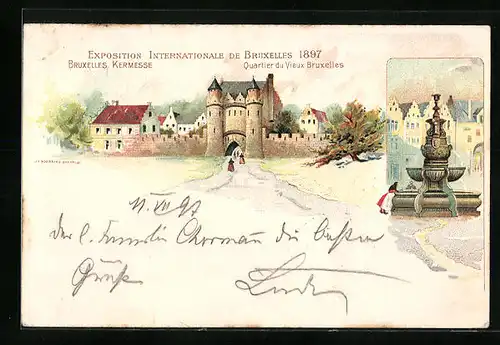 EXPOSITION INTERNATIONALE DE BRUXELLES 1897
BRUXELLES KERMESSE
Quartier du Vieux Bruxelles
11. VII 97
der l. Familie die besten
Grüße